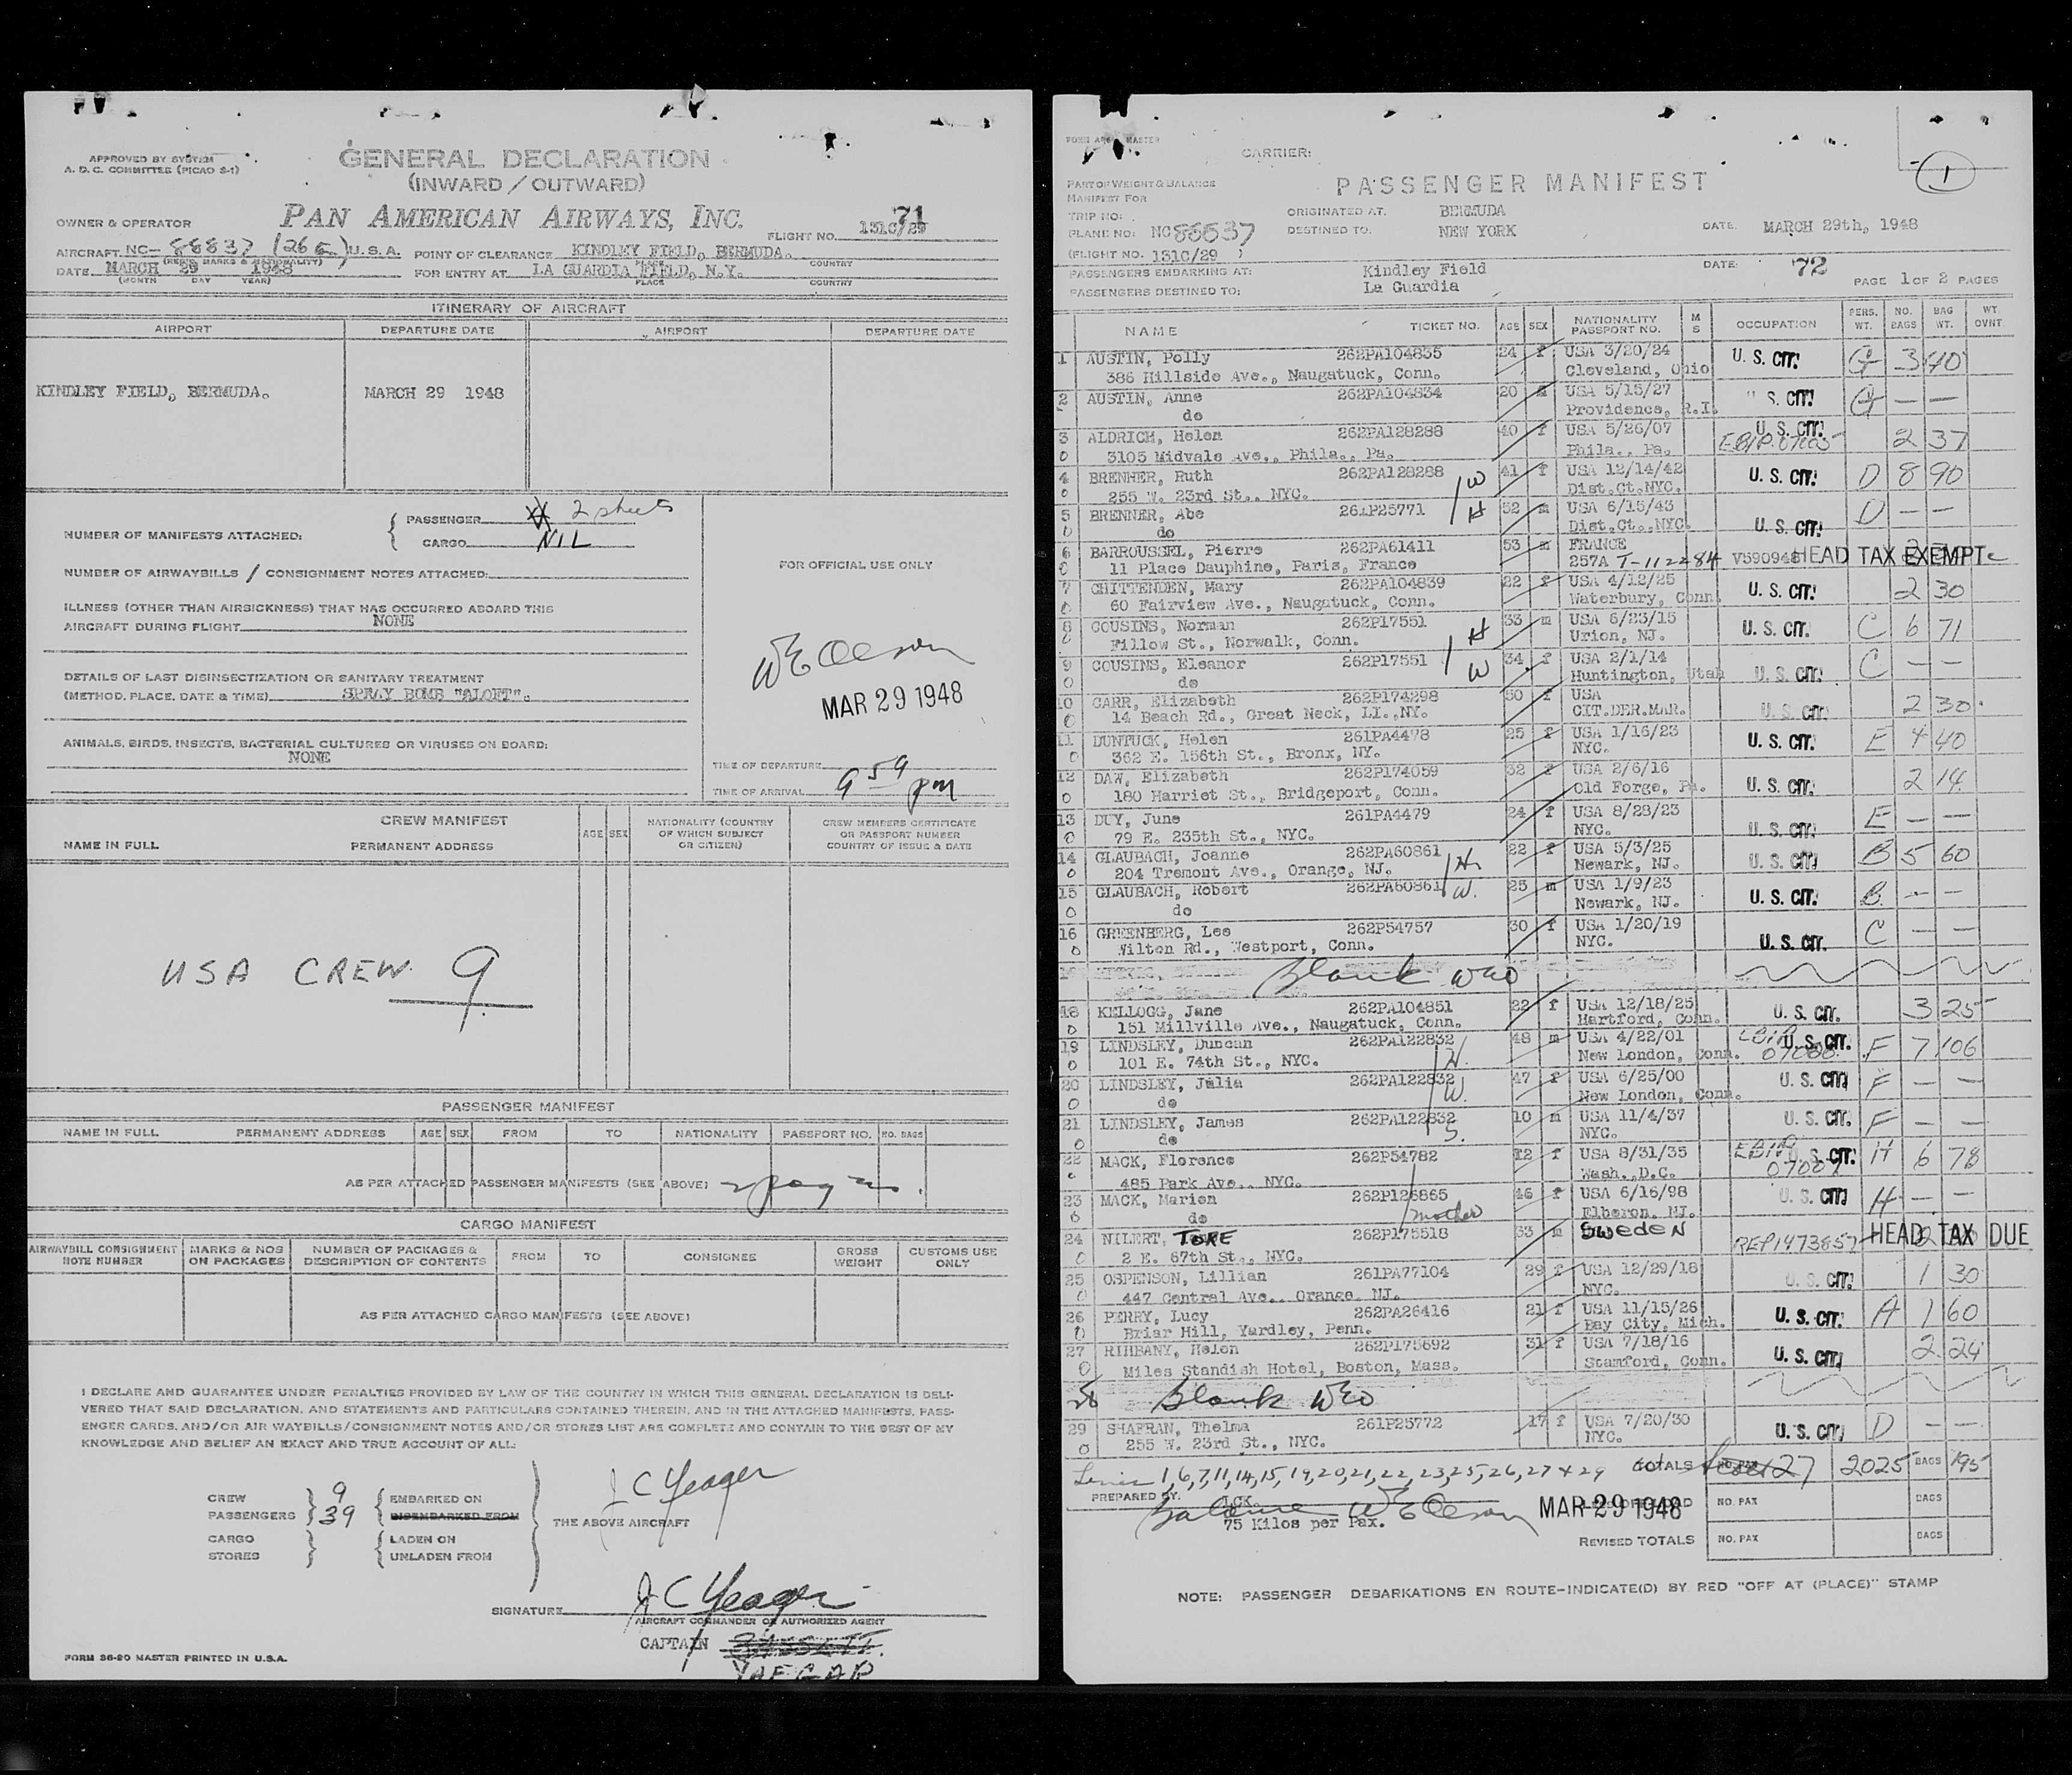 APPROVED BY SYSTEM
A. D. C. COMMITTEE (PICAO S-1)
GENERAL DECLARATION
(INWARD / OUTWARD)
OWNER & OPERATOR
PAN AMERICAN AIRWAYS, INC.
FLIGHT NO. 131C/29
71
AIRCRAFT NC-88837 (26 E) U.S.A.
(REG'D MARKS & NATIONALITY)
POINT OF CLEARANCE KINDLEY FIELD, BERMUDA.
PLACE COUNTRY
DATE MARCH 29 1948
(MONTH DAY YEAR)
FOR ENTRY AT LA GUARDIA FIELD, N.Y.
PLACE COUNTRY
ITINERARY OF AIRCRAFT
AIRPORT DEPARTURE DATE AIRPORT DEPARTURE DATE
KINDLEY FIELD, BERMUDA. MARCH 29 1948
NUMBER OF MANIFESTS ATTACHED:
PASSENGER 2 sheets
CARGO NIL
NUMBER OF AIRWAYBILLS / CONSIGNMENT NOTES ATTACHED:
ILLNESS (OTHER THAN AIRSICKNESS) THAT HAS OCCURRED ABOARD THIS
AIRCRAFT DURING FLIGHT NONE
DETAILS OF LAST DISINSECTIZATION OR SANITARY TREATMENT
(METHOD, PLACE, DATE & TIME) SPRAY BOMB "ALOFT".
ANIMALS, BIRDS, INSECTS, BACTERIAL CULTURES OR VIRUSES ON BOARD:
NONE
FOR OFFICIAL USE ONLY
WE Oleson
MAR 29 1948
TIME OF DEPARTURE
TIME OF ARRIVAL 9 59 pm
CREW MANIFEST
NAME IN FULL PERMANENT ADDRESS
AGE SEX
NATIONALITY (COUNTRY
OF WHICH SUBJECT
OR CITIZEN)
CREW MEMBERS CERTIFICATE
OR PASSPORT NUMBER
COUNTRY OF ISSUE & DATE
USA CREW 9
PASSENGER MANIFEST
NAME IN FULL PERMANENT ADDRESS AGE SEX FROM TO NATIONALITY PASSPORT NO. NO. BAGS
AS PER ATTACHED PASSENGER MANIFESTS (SEE ABOVE) 2 pages.
CARGO MANIFEST
AIRWAYBILL CONSIGNMENT
NOTE NUMBER
MARKS & NOS
ON PACKAGES
NUMBER OF PACKAGES &
DESCRIPTION OF CONTENTS
FROM TO CONSIGNEE
GROSS
WEIGHT
CUSTOMS USE
ONLY
AS PER ATTACHED CARGO MANIFESTS (SEE ABOVE)
I DECLARE AND GUARANTEE UNDER PENALTIES PROVIDED BY LAW OF THE COUNTRY IN WHICH THIS GENERAL DECLARATION IS DELI-
VERED THAT SAID DECLARATION, AND STATEMENTS AND PARTICULARS CONTAINED THEREIN, AND IN THE ATTACHED MANIFESTS, PASS-
ENGER CARDS, AND/OR AIR WAYBILLS/CONSIGNMENT NOTES AND/OR STORES LIST ARE COMPLETE AND CONTAIN TO THE BEST OF MY
KNOWLEDGE AND BELIEF AN EXACT AND TRUE ACCOUNT OF ALL:
CREW 9 EMBARKED ON
PASSENGERS 39 DISEMBARKED FROM
CARGO LADEN ON
STORES UNLADEN FROM
J C Yeager
THE ABOVE AIRCRAFT
SIGNATURE J C Yeager
AIRCRAFT COMMANDER OR AUTHORIZED AGENT
CAPTAIN
YAEGAR
FORM 36-20 MASTER PRINTED IN U.S.A.
MASTER
CARRIER:
PART OF WEIGHT & BALANCE
MANIFEST FOR
PASSENGER MANIFEST
1
TRIP NO:
ORIGINATED AT. BERMUDA
PLANE NO: NC88837
DESTINED TO. NEW YORK
DATE. MARCH 29th, 1948
(FLIGHT NO. 131C/29 )
PASSENGERS EMBARKING AT: Kindley Field
DATE: 72
PASSENGERS DESTINED TO: La Guardia
PAGE 1 OF 2 PAGES
NAME TICKET NO. AGE SEX NATIONALITY PASSPORT NO. M S OCCUPATION PERS. WT. NO. BAGS BAG WT. WT. OVNT
1 AUSTIN, Polly 262PA104835 24 f USA 3/20/24 U. S. CIT. G 3 40
386 Hillside Ave., Naugatuck, Conn. Cleveland, Ohio
2 AUSTIN, Anne 262PA104834 20 f USA 5/15/27 U. S. CIT. G — —
do Providence, R.I.
3 ALDRICH, Helen 262PA128288 40 f USA 5/26/07 U. S. CIT. 2 37
0 3105 Midvale Ave., Phila., Pa. Phila., Pa.
4 BRENNER, Ruth 262PA128288 W 41 f USA 12/14/42 U. S. CIT. D 8 90
0 255 W. 23rd St., NYC. Dist.Ct.NYC.
5 BRENNER, Abe 261P25771 H 52 m USA 6/15/43 U. S. CIT. D — —
0 do Dist.Ct.,NYC.
6 BARROUSSEL, Pierre 262PA61411 53 m FRANCE
0 11 Place Dauphine, Paris, France 257A T-112284 V590948 HEAD TAX EXEMPT
7 CHITTENDEN, Mary 262PA104839 22 f USA 4/12/25 U. S. CIT. 2 30
0 60 Fairview Ave., Naugatuck, Conn. Waterbury, Conn.
8 COUSINS, Norman 262P17551 H 33 m USA 6/23/15 U. S. CIT. C 6 71
0 Fillow St., Norwalk, Conn. Union, NJ.
9 COUSINS, Eleanor 262P17551 W 34 f USA 2/1/14 U. S. CIT. C — —
0 do Huntington, Utah
10 CARR, Elizabeth 262P174298 50 f USA U. S. CIT. 2 30
0 14 Beach Rd., Great Neck, LI.,NY. CIT.DER.MAR.
11 DUNTUCK, Helen 261PA4478 25 f USA 1/16/23 U. S. CIT. E 4 40
0 362 E. 156th St., Bronx, NY. NYC.
12 DAW, Elizabeth 262P174059 32 f USA 2/6/16 U. S. CIT. 2 14
0 180 Harriet St., Bridgeport, Conn. Old Forge, Pa.
13 DUY, June 261PA4479 24 f USA 8/28/23 U. S. CIT. E — —
0 79 E. 235th St., NYC. NYC.
14 GLAUBACH, Joanne 262PA60861 H. 22 f USA 5/3/25 U. S. CIT. B 5 60
0 204 Tremont Ave., Orange, NJ. Newark, NJ.
15 GLAUBACH, Robert 262PA60861 W. 25 m USA 1/9/23 U. S. CIT. B — —
0 do Newark, NJ.
16 GREENBERG, Lee 262P54757 30 f USA 1/20/19 U. S. CIT. C — —
0 Wilton Rd., Westport, Conn. NYC.
Blank WEO
18 KELLOGG, Jane 262PA104851 22 f USA 12/18/25 U. S. CIT. 3 25
0 151 Millville Ave., Naugatuck, Conn. Hartford, Conn.
19 LINDSLEY, Duncan 262PA122832 H. 48 m USA 4/22/01 U. S. CIT. F 7 106
0 101 E. 74th St., NYC. New London, Conn.
20 LINDSLEY, Julia 262PA122832 W. 47 f USA 6/25/00 U. S. CIT. F — —
0 do New London, Conn.
21 LINDSLEY, James 262PA122832 S. 10 m USA 11/4/37 U. S. CIT. F — —
0 do NYC.
22 MACK, Florence 262P54782 12 f USA 8/31/35 U. S. CIT. H 6 78
485 Park Ave., NYC. Wash.,D.C.
23 MACK, Marion 262P126865 46 f USA 6/16/98 U. S. CIT. H — —
0 do mother Elberon, NJ.
24 NILERT, TORE 262P175518 33 m SWEDEN REP1473857 HEAD TAX DUE
0 2 E. 67th St., NYC.
25 OSPENSON, Lillian 261PA77104 29 f USA 12/29/18 U. S. CIT. 1 30
0 447 Central Ave., Orange, NJ. NYC.
26 PERRY, Lucy 262PA26416 21 f USA 11/15/26 U. S. CIT. A 1 60
0 Briar Hill, Yardley, Penn. Bay City, Mich.
27 RIHBANY, Helen 262P175692 31 f USA 7/18/16 U. S. CIT. 2 24
0 Miles Standish Hotel, Boston, Mass. Stamford, Conn.
28 Blank WEO
29 SHAFRAN, Thelma 261P25772 17 f USA 7/20/30 U. S. CIT. D — —
0 255 W. 23rd St., NYC. NYC.
1,6,7,11,14,15,19,20,21,22,23,25,26,27 + 29 TOTALS NO. PAX 27 2025 BAGS 195
PREPARED BY. WE Oleson MAR 29 1948 NO. PAX BAGS
75 Kilos per Pax.
REVISED TOTALS NO. PAX BAGS
NOTE: PASSENGER DEBARKATIONS EN ROUTE-INDICATE(D) BY RED "OFF AT (PLACE)" STAMP